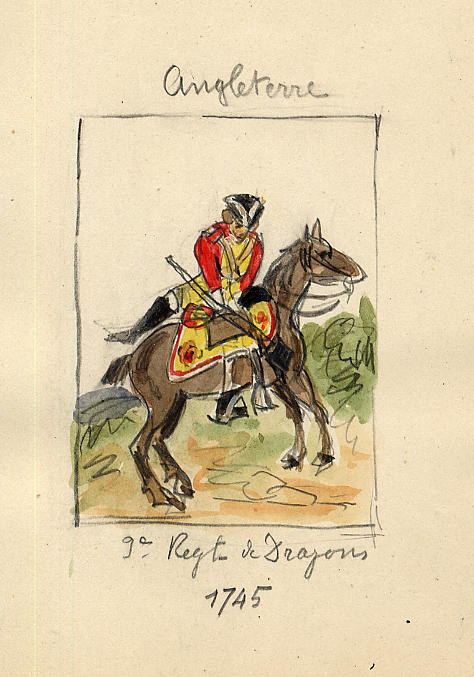 Angleterre
9e Regt de Dragons
1745